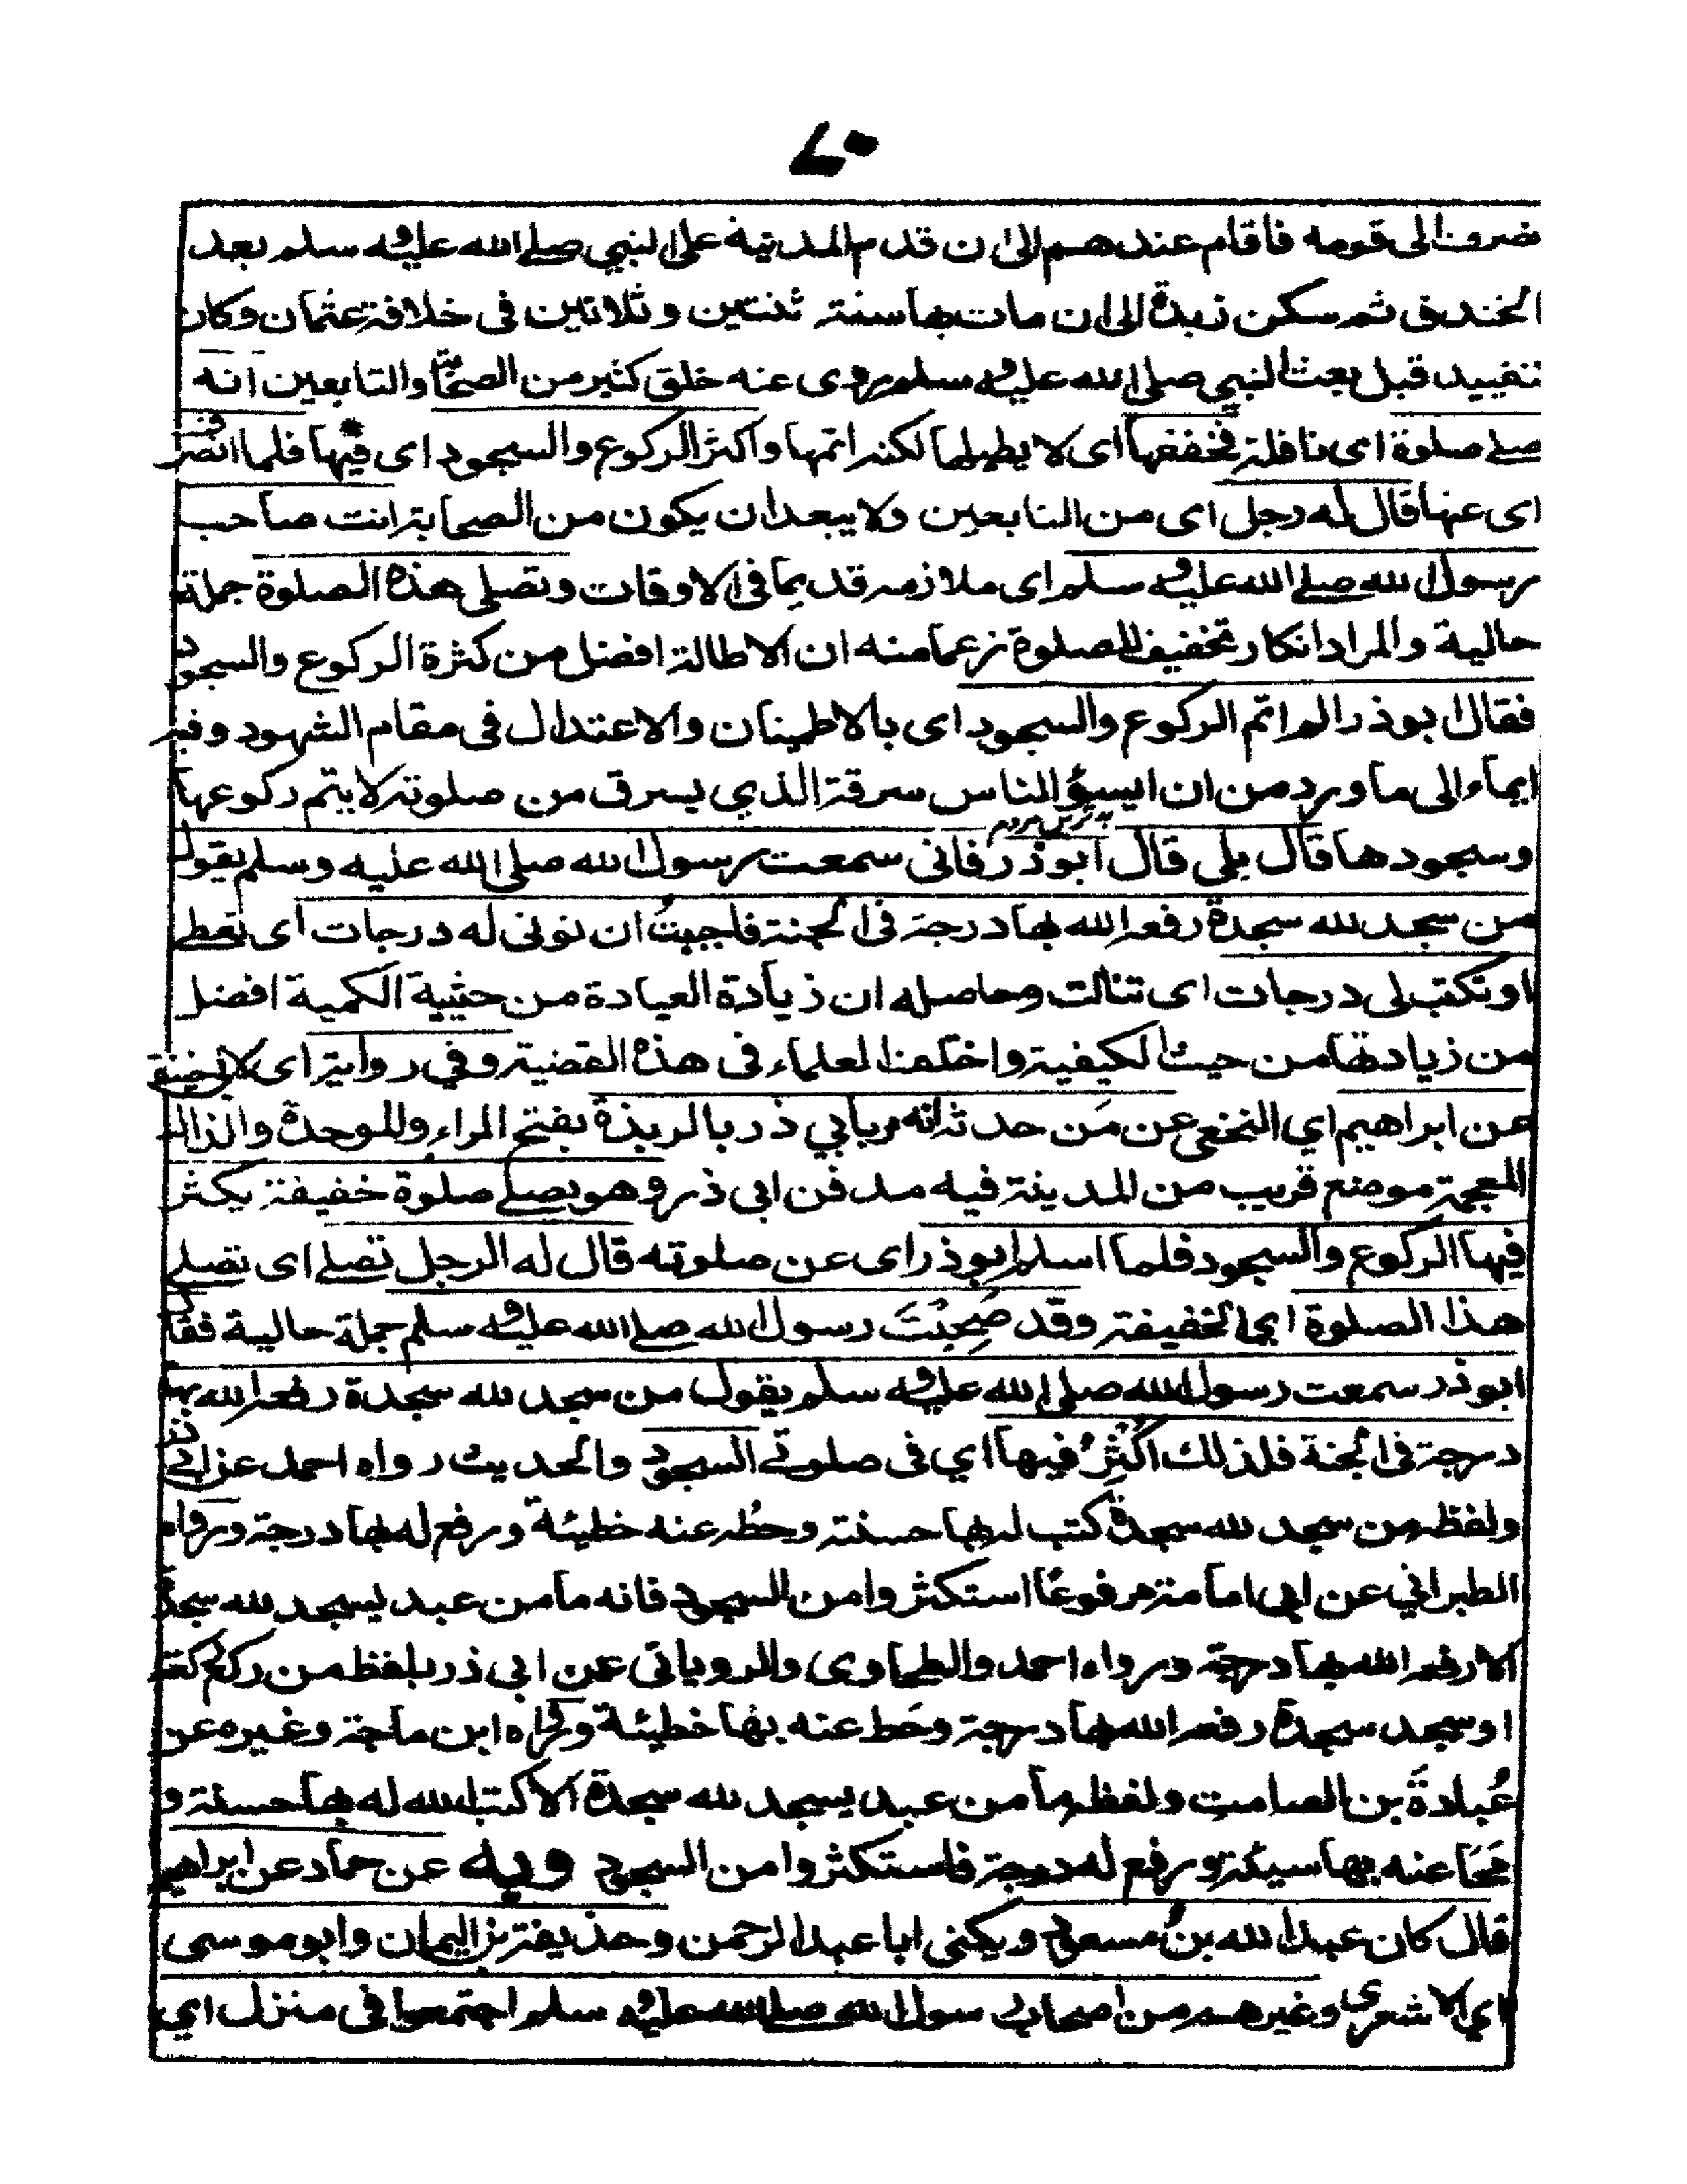 ٧٠
نصرف الى قومه فاقام عندهم الى ان قدم المدينة على النبي صلے الله عليه وسلم بعد
الخندق ثم سكن ربذة الى ان مات بها سنة ثنتين وثلاثين فى خلافة عثمان وكان
تتفييد قبل بعث النبي صلى الله عليه وسلم روى عنه خلق كثير من الصحابة والتابعين انه
صلے صلوة اى نافلة فخففها اى لا يطيلها لكنه اتمها واكثر الركوع والسجود اى فيها فلما انصرف
اى عنها قال له رجل اى من التابعين ولا يبعد ان يكون من الصحابة انت صاحب
رسول الله صلے الله عليه وسلم اى ملازمه قديما فى الاوقات وتصلى هذه الصلوة جملة
حالية والمراد انكار تخفيف الصلوة زعما منه ان الاطالة افضل من كثرة الركوع والسجود
فقال ابو ذر الم اتم الركوع والسجود اى بالاطمينان والاعتدال فى مقام الشهود وفيه
ايماء الى ما ورد من ان اسوؤ الناس سرقة الذي يسرق من صلوته لا يتم ركوعها
بدترين مردم
وسجودها قال بلى قال ابو ذر فانى سمعت رسول الله صلى الله عليه وسلم يقول
من سجد لله سجدة رفعه الله بها درجة فى الجنة فاحببت ان تؤتى له درجات اى تعطے
او تكتب لى درجات اى تنالت وحاصله ان زيادة العبادة من حيثية الكمية افضل
من زيادتها من حيث الكيفية واختلف العلماء فى هذه القضية وفي رواية اى لابى حنيفة
عن ابراهيم اي النخعى عن مَن حدثه انه مر بابي ذر بالربذة بفتح الراء والموحدة والذال
المعجمة موضع قريب من المدينة فيه مدفن ابى ذر وهو يصلے صلوة خفيفة يكثر
فيها الركوع والسجود فلما اسلم ابو ذر اى عن صلوته قال له الرجل تصلے اى تصلے
هذا الصلوة اي الخفيفة وقد صَحِبْتَ رسول الله صلے الله عليه وسلم جملة حالية فقال
ابو ذر سمعت رسول الله صلى الله عليه وسلم يقول من سجد لله سجدة رفعه الله بها
درجة فى الجنة فلذلك اُكْثِرُ فيها اي فى صلوتے السجود والحديث رواه احمد عن ابے ذر
ولفظه من سجد لله سجدة كتب له بها حسنة وحُط عنه خطيئة ورفع له بها درجة ورواه
الطبراني عن ابى امامة مرفوعًا استكثروا من السجود فانه ما من عبد يسجد لله سجدة
الا رفعه الله بها درجة ورواه احمد والطحاوى والروياتى عن ابى ذر بلفظ من ركع ركعة
او سجد سجدة رفعه الله بها درجة وحَط عنه بها خطيئة ورواه ابن ماجة وغيره عن
عُبادَةَ بن الصامت ولفظه ما من عبد يسجد لله سجدة الا كتب الله له بها حسنة و
مَحَا عنه بها سيئة ورفع له درجة فاستكثروا من السجود وبه عن حماد عن ابراهيم
قال كان عبد الله بنُ مسعود ويكنى ابا عبد الرحمن وحذيفة بن اليمان وابو موسى
اي الاشعرى وغيرهم من اصحاب رسول الله صلے الله عليه وسلم اجتمعوا فى منزل اي